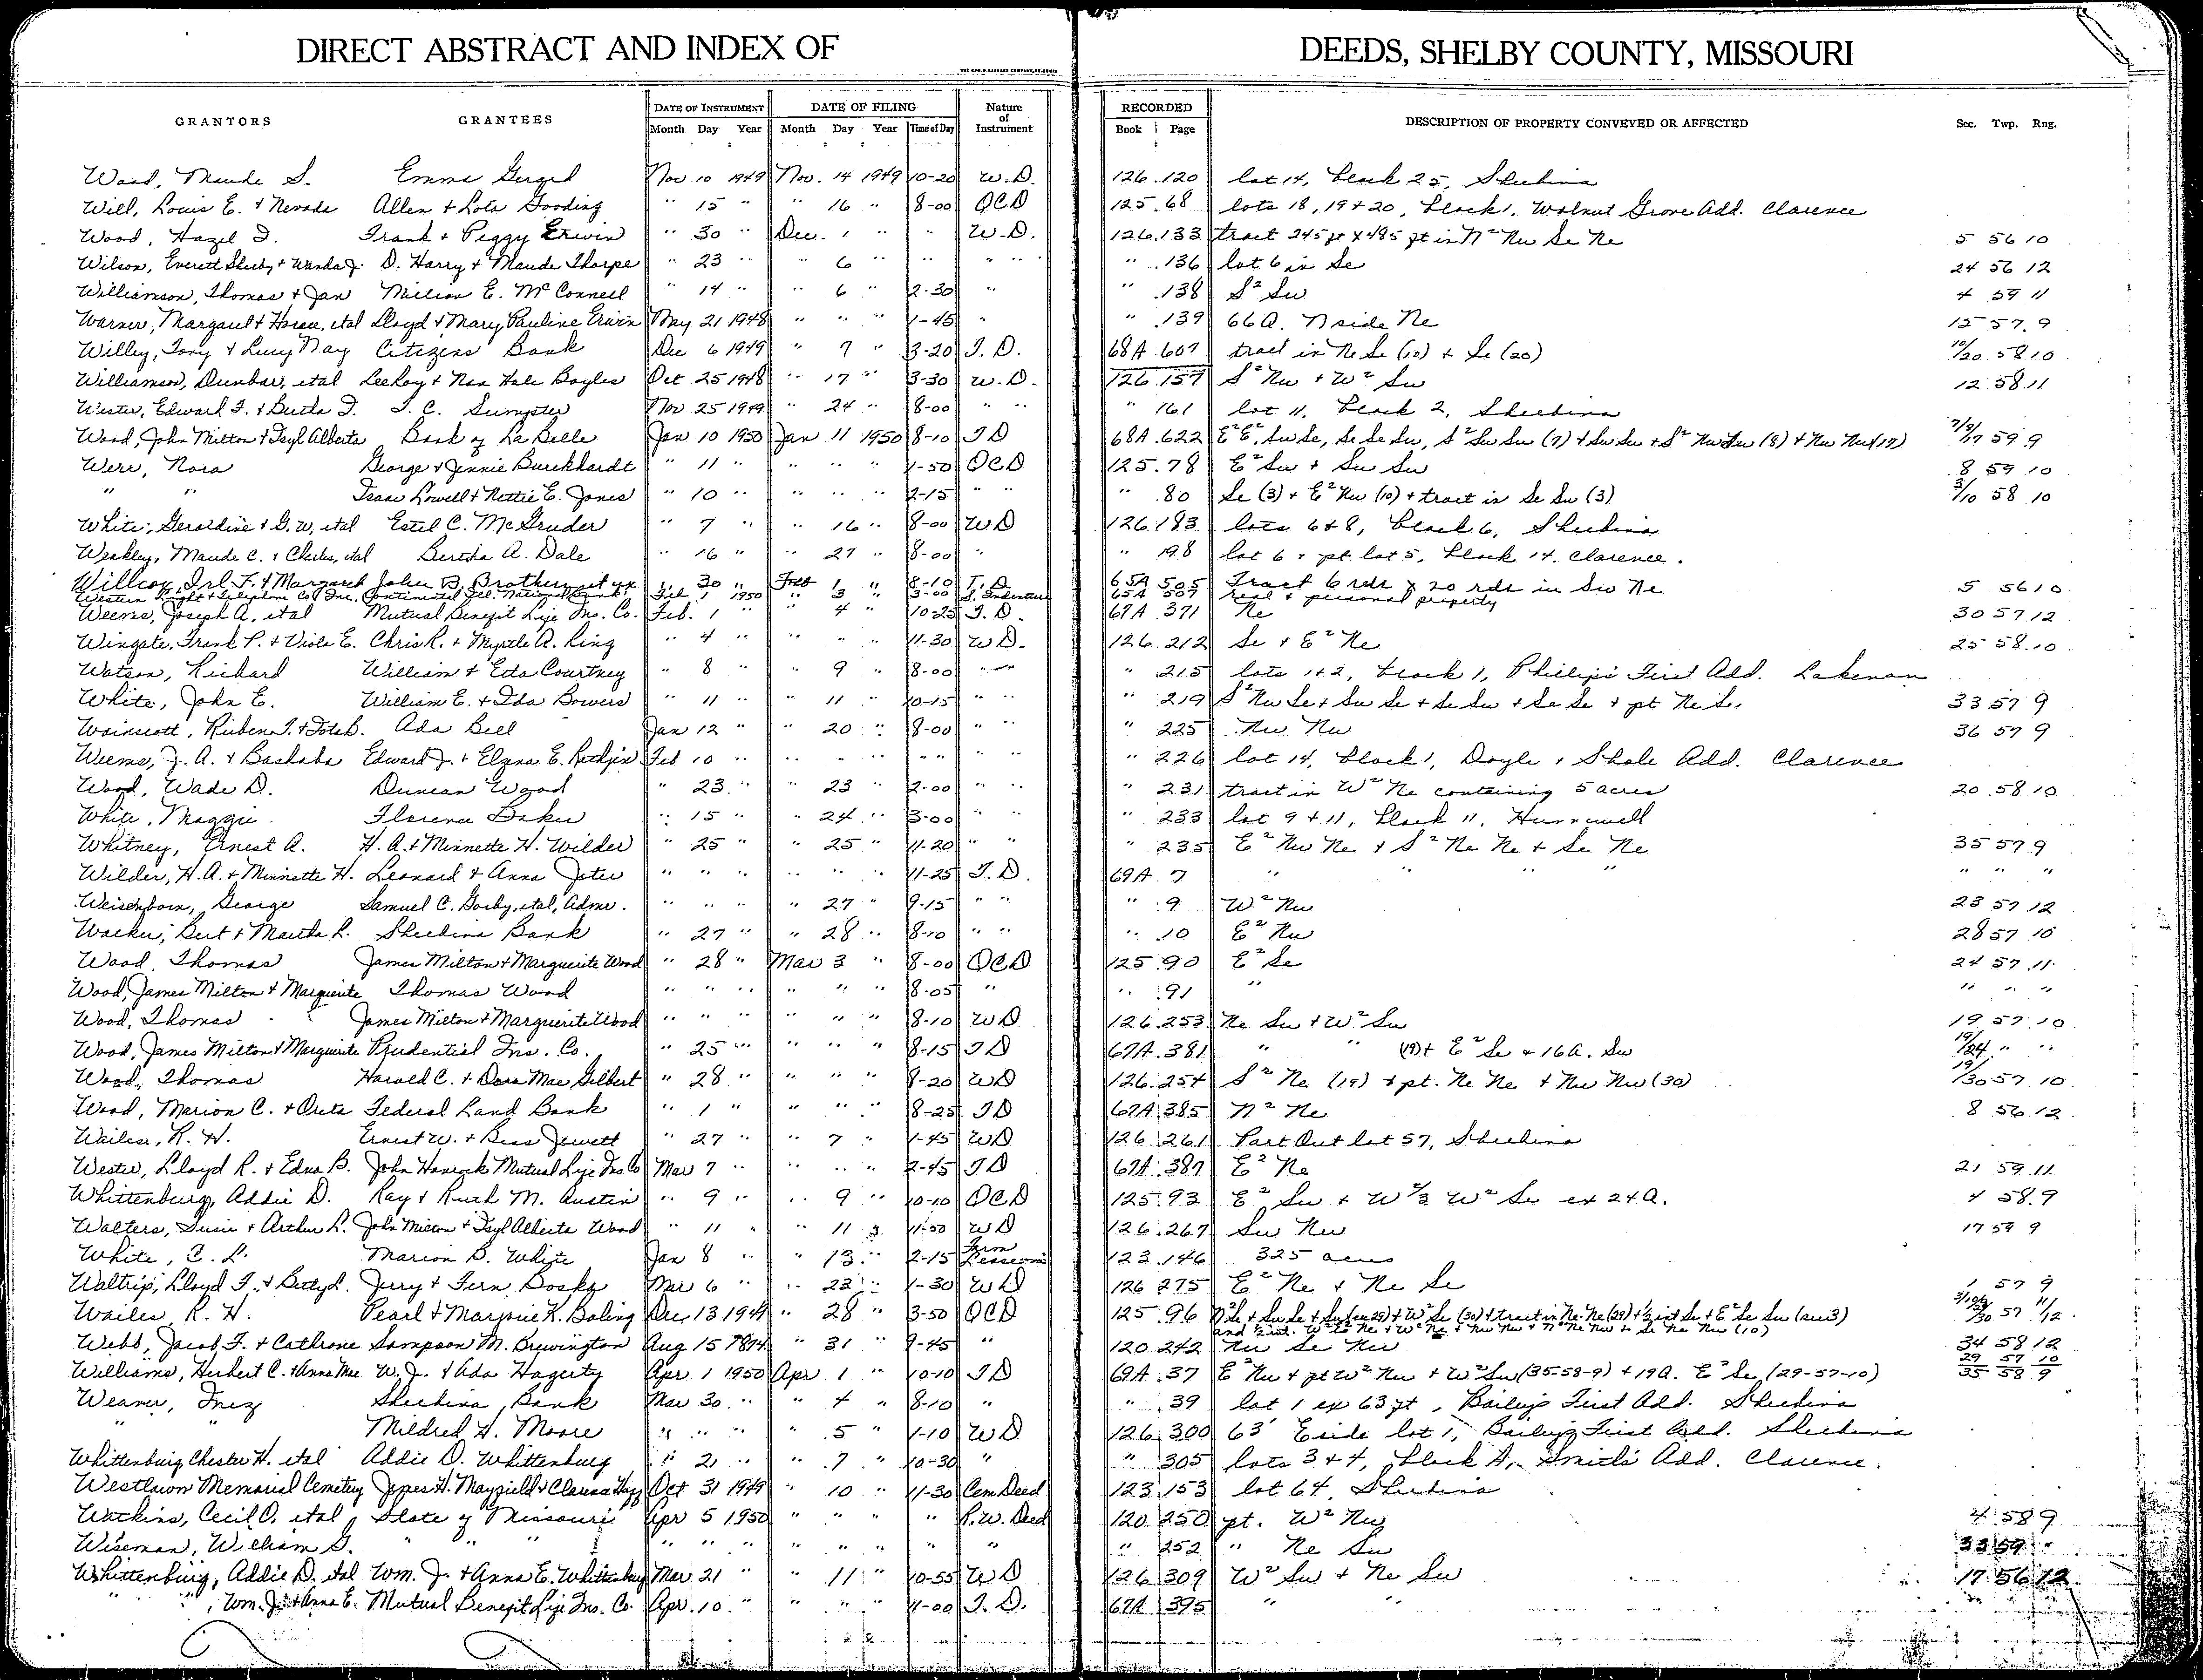 DIRECT ABSTRACT AND INDEX OF DEEDS, SHELBY COUNTY, MISSOURI
GRANTORS GRANTEES DATE OF INSTRUMENT DATE OF FILING Nature of Instrument RECORDED DESCRIPTION OF PROPERTY CONVEYED OR AFFECTED Sec. Twp. Rng.
Month Day Year Month Day Year Time of Day Book Page
Wood, Maude S. Emma Gerard Nov. 10 1949 Nov. 14 1949 10-20 W.D. 126 120 lot 14, block 25, Shelbina
Will, Louis E. + Nevada Allen + Lota Gooding " 15 " " 16 " 8-00 QCD 125 68 lots 18, 19 + 20, block 1, Walnut Grove Add. Clarence
Wood, Hazel I. Frank + Peggy Erwin " 30 " Dec. 1 " " W.D. 126 133 tract 245 ft x 485 ft in N² Nw Se Ne 5 56 10
Wilson, Everett Shelby + Wanda J. D. Harry + Maude Thorpe " 23 " " 6 " " " " " 136 lot 6 in Se 24 56 12
Williamson, Thomas + Jan E. McConnell " 14 " " 6 " 2-30 " " 138 S² Sw 4 59 11
Warner, Margaret + , etal Lloyd + Mary Pauline Erwin May 21 1948 " " " 1-45 " " 139 66 a. N side Ne 15 57 9
Willey, Tony + Lucy May Citizens Bank Dec 6 1949 " 7 " 3-20 T.D. 68A 607 tract in Ne Se (10) + Se (20) 10/20 58 10
Williamson, Dunbar, etal LeeRoy + Nan Hale Bayles Oct 25 1948 " 17 " 3-30 W.D. 126 157 S² Nw + W² Sw 12 58 11
Wester, Edward F. + Bertha F. T. C. Sumpter Nov 25 1949 " 24 " 8-00 " " " 161 lot 11, block 2, Shelbina
Wood, John Milton + Tsyl Alberta Bank of La Belle Jan 10 1950 Jan 11 1950 8-10 TD 68A 622 E² E², Sw Se, Se Se Sw, S² Sw Sw (7) + Sw Sw + S² Nw Sw (8) + Nw Nw (17) 7/8/17 59 9
Werr, Nora George + Jennie Burckhardt " 11 " " " " 1-50 QCD 125 78 E² Sw + Sw Sw 8 59 10
" " Isaac Lowell + Nettie E. Jones " 10 " " " " 2-15 " " " 80 Se (3) + E² Nw (10) + tract in Se Sw (3) 3/10 58 10
White, Geraldine + G. W, etal Estel C. McGruder " 7 " " 16 " 8-00 WD 126 183 lots 6 + 8, block 6, Shelbina
Weakley, Maude C. + Charles, etal Bertha A. Dale " 16 " " 27 " 8-00 " " 198 lot 6 + pt lot 5, block 14, Clarence.
Willcox, Irl F. + Margaret John B. Brothers et ux " 30 " Feb 1 " 8-10 T.D. 65A 505 Tract 6 rds x 20 rds in Sw Ne 5 56 10
Western Light + Telephone Co., Inc. Continental Ill. National Bank Feb 1 1950 " 3 " 3-00 S. Indenture 65A 507 real + personal property
Weems, Joseph A, etal Mutual Benefit Life Ins. Co. Feb. 1 " " 4 " 10-25 T.D. 67A 371 Ne 30 57 12
Wingate, Frank P. + Viola E. Chris R. + Myrtle A. King " 4 " " " " 11-30 WD. 126 212 Se + E² Ne 25 58 10
Watson, Richard William + Eda Courtney " 8 " " 9 " 8-00 " " " 215 lots 1 + 2, block 1, Phillips First Add. Lakenan
White, John E. William E. + Ida Bowers " 11 " " 11 " 10-15 " " " 219 S² Nw Se + Sw Se + Se Sw + Se Se + pt Ne Se. 33 57 9
Wainscott, Ruben T. + Ada Bell Jan 12 " " 20 " 8-00 " " " 225 Nw Nw 36 57 9
Weems, J. A. + Bashaba Edward J. + Elzina E. Feb 10 " " " " " " " " 226 lot 14, block 1, Doyle + Shale Add. Clarence
Wood, Wade D. Duncan Wood " 23 " " 23 " 2-00 " " " 231 tract in W² Ne containing 5 acres 20 58 10
White, Maggie Florence Baker " 15 " " 24 " 3-00 " " " 233 lot 9 + 11, block 11, Hunnewell
Whitney, Ernest A. H. A. + Minnette H. Wilder " 25 " " 25 " 11-20 " " " 235 E² Nw Ne + S² Ne Ne + Se Ne 35 57 9
Wilder, H. A. + Minnette H. Leonard + Anna Jeter " " " " " " 11-25 T.D. 69A 7 " " " " " " "
Weisenborn, George Samuel C. Gorby, etal, Admr. " " " " 27 " 9-15 " " " 9 W² Nw 23 57 12
Walker, Bert + Martha L. Shelbina Bank " 27 " " 28 " 8-10 " " " 10 E² Nw 28 57 10
Wood, Thomas James Milton + Marguerite Wood " 28 " Mar 3 " 8-00 QCD 125 90 E² Se 24 57 11
Wood, James Milton + Marguerite Thomas Wood " " " " " " 8-05 " " 91 " " " "
Wood, Thomas James Milton + Marguerite Wood " " " " " " 8-10 WD 126 253 Ne Sw + W² Sw 19 57 10
Wood, James Milton + Marguerite Prudential Ins. Co. " 25 " " " " 8-15 TD 67A 381 " " (19) + E² Se + 16 a. Sw 19/24 " "
Wood, Thomas Harold C. + Dora Mae Gilbert " 28 " " " " 8-20 WD 126 254 S² Ne (19) + pt. Ne Ne + Nw Nw (30) 19/30 57 10
Wood, Marion C. + Federal Land Bank " 1 " " " " 8-25 TD 67A 385 N² Ne 8 56 12
Wailes, R. H. Ernest W. + Bess Jewett " 27 " " 7 " 1-45 WD 126 261 Part Out lot 57, Shelbina
Wester, Lloyd R. + Edna B. John Hancock Mutual Life Ins Co Mar 7 " " " " 2-45 TD 67A 387 E² Ne 21 59 11
Whittenburg, Addie D. Ray + Ruth M. Austin " 9 " " 9 " 10-10 QCD 125 93 E² Sw + W⅔ W² Se ex 24 a. 4 58 9
Walters, Susie + Arthur L. John Milton + Tsyl Alberta Wood " 11 " " 11 " 11-50 WD 126 267 Sw Nw 17 59 9
White, C. L. Marion D. White Jan 8 " " 13 " 2-15 Farm 123 146 325 acres
Waltrip, Lloyd F. + Betty L. Jerry + Fern Dosky Mar 6 " " 22 " 1-30 WD 126 275 E² Ne + Ne Se 1 57 9
Wailes, R. H. Pearl + Marjorie K. Boling Dec 13 1949 " 28 " 3-50 QCD 125 96
Webb, Jacob F. + Cathrone Sampson M. Brewington Aug 15 1894 " 31 " 9-45 " 120 242 Nw Se Nw 34 58 12
Williams, Herbert C. + Anna Mae W. J. + Ada Hagerty Apr 1 1950 Apr. 1 " 10-10 TD 69A 37 E² Nw + pt W² Nw + W² Sw (35-58-9) + 19 a. E² Se (29-57-10) 29 57 10 / 35 58 9
Weaver, Inez Shelbina Bank Mar 30 " " 4 " 8-10 " " 39 lot 1 ex 63 ft, Bailey's First Add. Shelbina
" " Mildred H. Moore " " " " 5 " 1-10 WD 126 300 63' E side lot 1, Bailey's First Add. Shelbina
Whittenburg Chester H. etal Addie D. Whittenburg " 21 " " 7 " 10-30 " " 305 lots 3 + 4, block A, Smith's Add. Clarence.
Westlawn Memorial Cemetery James H. Mayfield + Clarence Oct 31 1949 " 10 " 11-30 Cem Deed 123 153 lot 64, Shelbina
Watkins, Cecil O. etal State of Missouri Apr 5 1950 " " " " R.W. Deed 120 250 pt. W² Nw 4 58 9
Wiseman, William G. " " " " " " " " " " " 252 " Ne Sw 33 59 "
Whittenburg, Addie D. etal Wm. J. + Anna E. Whittenburg Mar 21 " " 11 " 10-55 WD 126 309 W² Sw + Ne Sw 17 56 12
" ", Wm. J. + Anna E. Mutual Benefit Life Ins. Co. Apr. 10 " " " " 11-00 T.D. 67A 395 " "